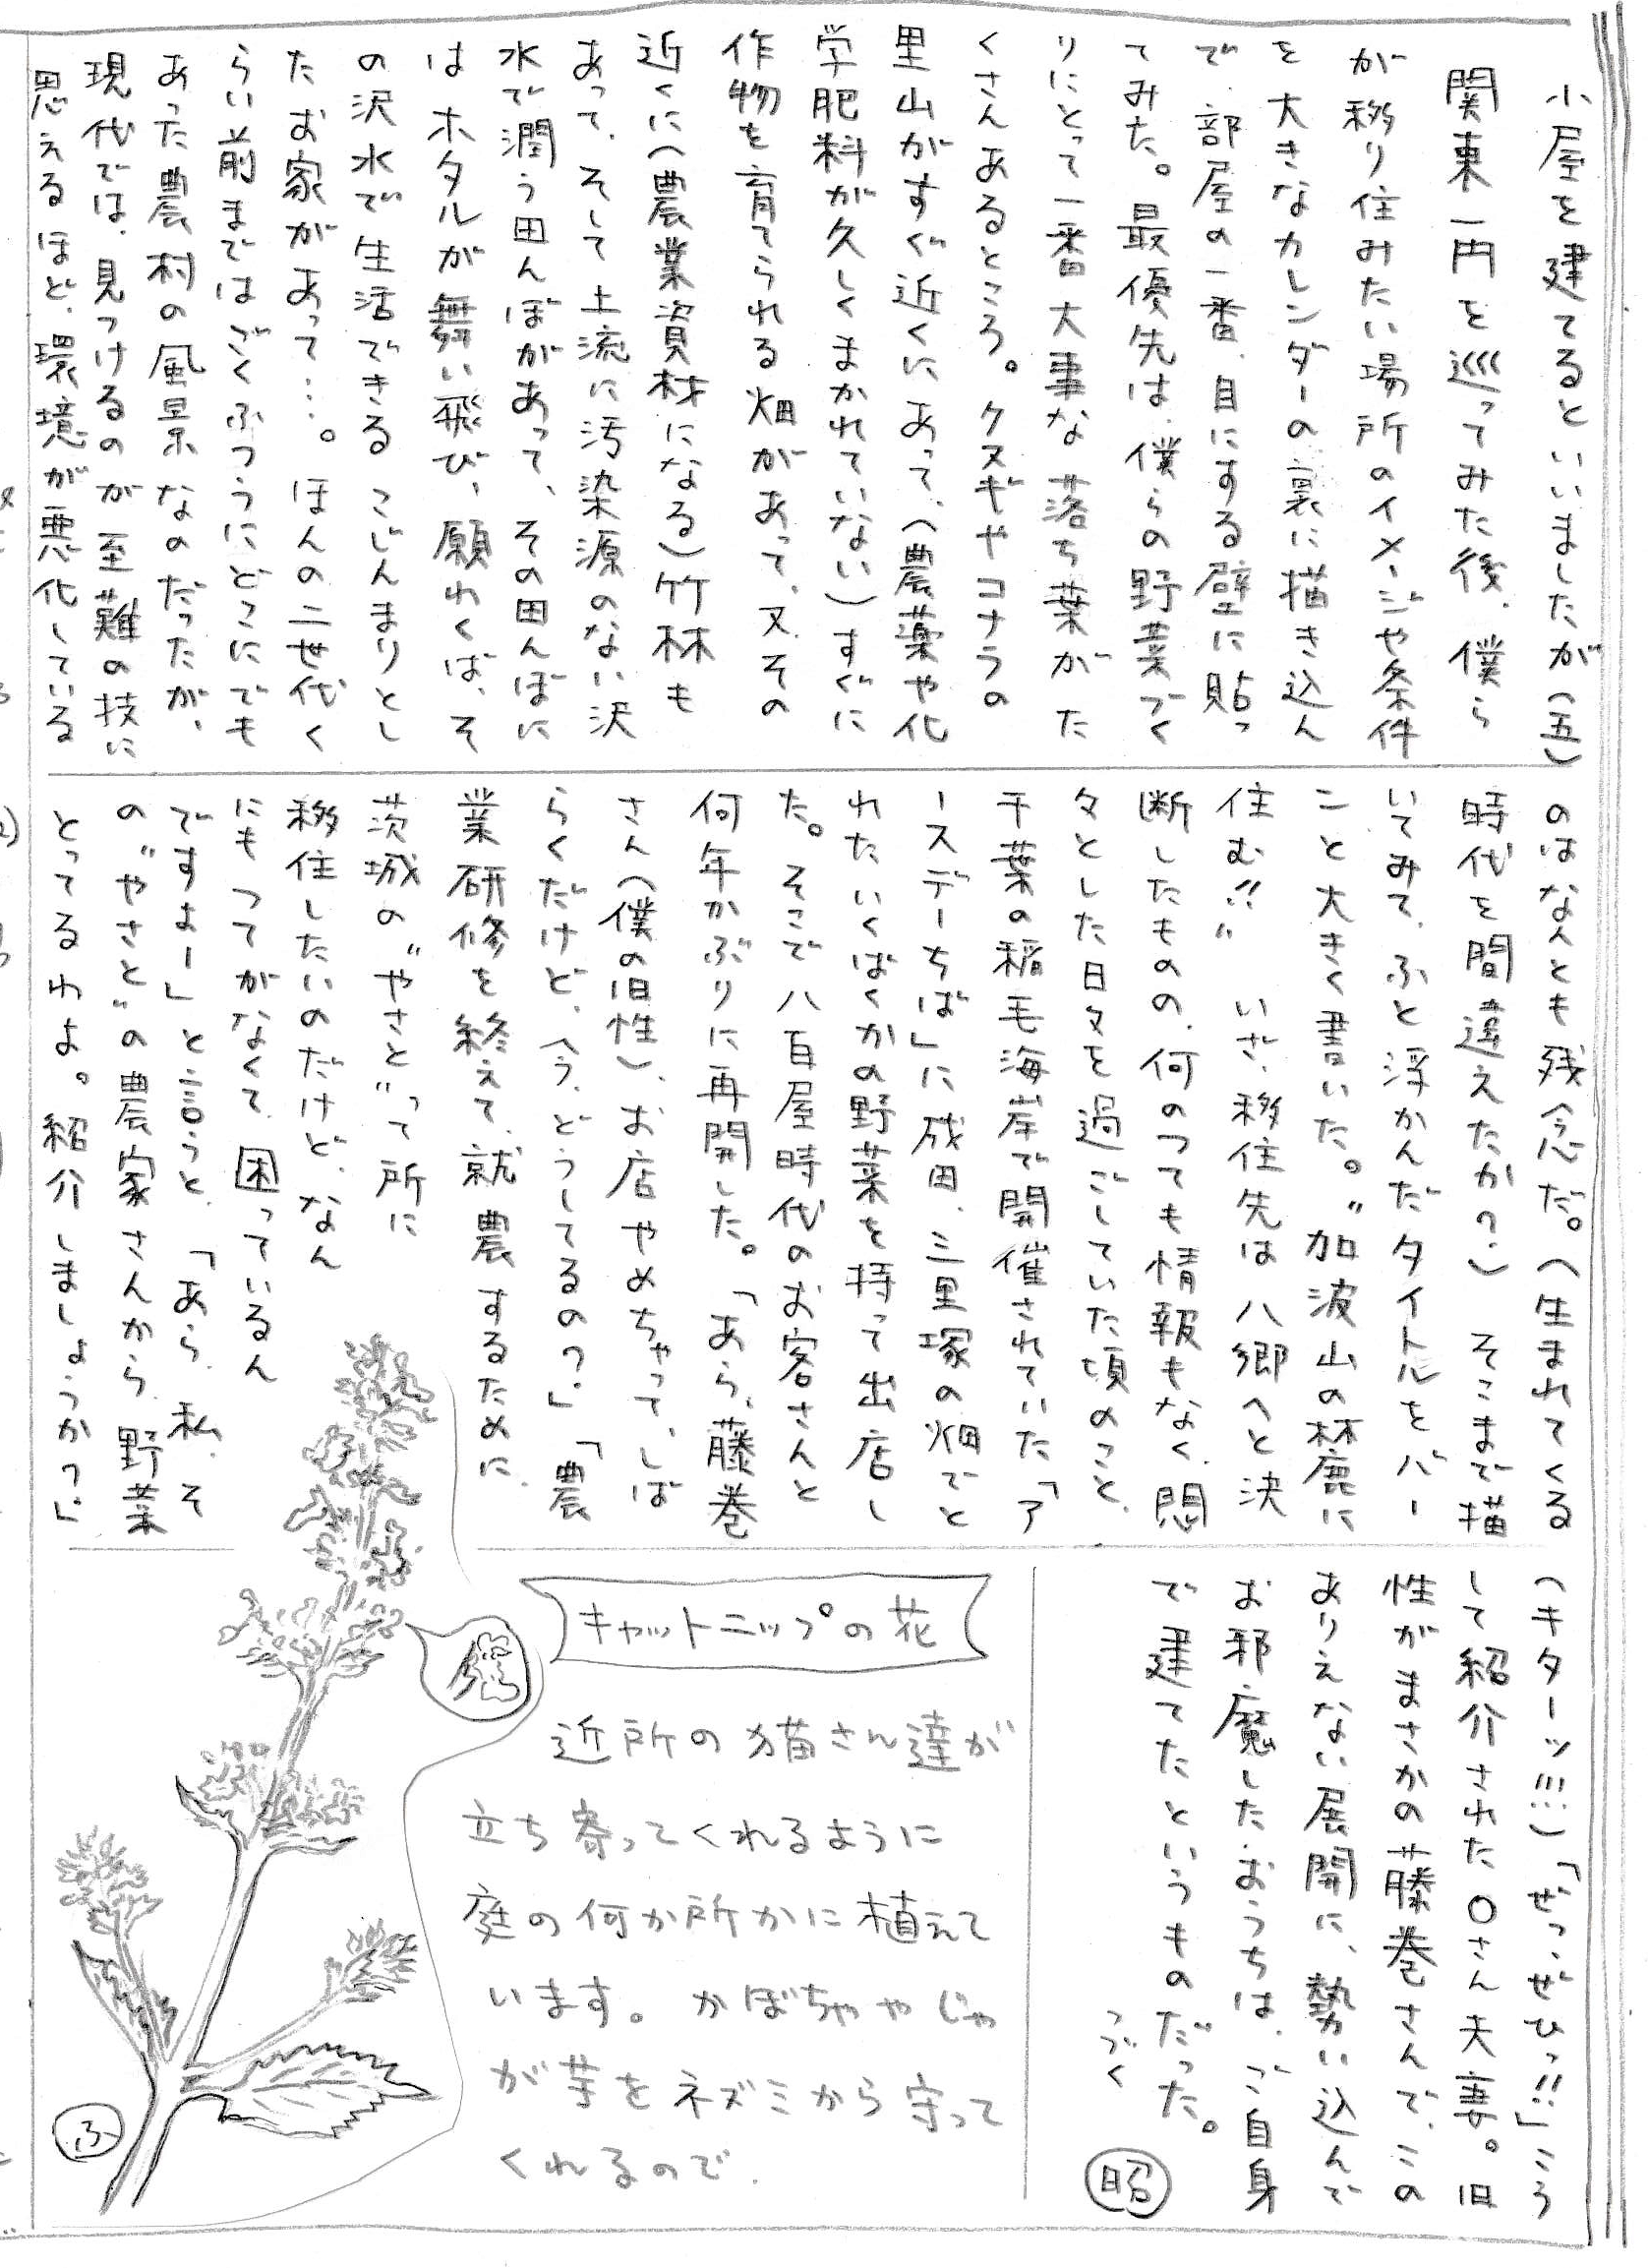 小屋を建てるといいましたが(五)
関東一円を巡ってみた後、僕ら
が移り住みたい場所のイメージや条件
を大きなカレンダーの裏に描き込ん
で、部屋の一番、目にする壁に貼っ
てみた。最優先は、僕らの野菜づく
りにとって一番大事な落ち葉がた
くさんあるところ。クヌギやコナラの
里山がすぐ近くにあって、(農薬や化
学肥料が久しくまかれていない)すぐに
作物を育てられる畑があって、又、その
近くに(農業資材になる)竹林も
あって、そして上流に汚染源のない沢
水で潤う田んぼがあって、その田んぼに
はホタルが舞い飛び、願わくば、そ
の沢水で生活できるこじんまりとし
たお家があって…。ほんの二世代く
らい前まではごくふつうにどこにでも
あった農村の風景なのだったが、
現代では、見つけるのが至難の技に
思えるほど、環境が悪化している
のはなんとも残念だ。(生まれてくる
時代を間違えたか?)そこまで描
いてみて、ふと浮かんだタイトルをバー
ンと大きく書いた。〝加波山の林麓に
住む!!〟いざ、移住先は八郷へと決
断したものの、何のつても情報もなく、悶
々とした日々を過ごしていた頃のこと、
千葉の稲毛海岸で開催されていた「ア
ースデーちば」に成田、三里塚の畑でと
れたいくばくかの野菜を持って出店し
た。そこで八百屋時代のお客さんと
何年かぶりに再開した。「あら、藤巻
さん(僕の旧性)、お店やめちゃって、しば
らくだけど、今、どうしてるの?」「農
業研修を終えて、就農するために、
茨城の〝やさと〟って所に
移住したいのだけど、なん
にもつてがなくて、困っているん
ですよー」と言うと、「あら、私、そ
の〝やさと〟の農家さんから、野菜
とってるわよ。紹介しましょうか?」
(キターッ!!!)「ぜっ、ぜひっ!!」こう
して紹介された〇さん夫妻。旧
性がまさかの藤巻さんで、この
ありえない展開に、勢い込んで
お邪魔したおうちは、ご自身
で建てたというものだった。
つづく
昭
キャットニップの花
近所の猫さん達が
立ち寄ってくれるように
庭の何か所かに植えて
います。かぼちゃやじゃ
が芋をネズミから守って
くれるので。
ふ